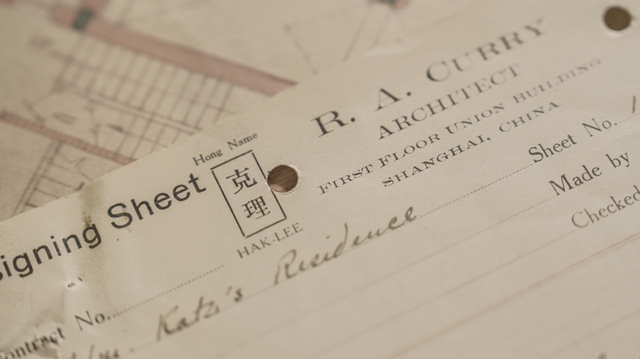 R. A. CURRY
ARCHITECT
FIRST FLOOR UNION BUILDING
SHANGHAI, CHINA
Hong Name
克理
HAK-LEE
signing Sheet
Sheet No.
Made by
Checked
Contract No.
Katz's Residence